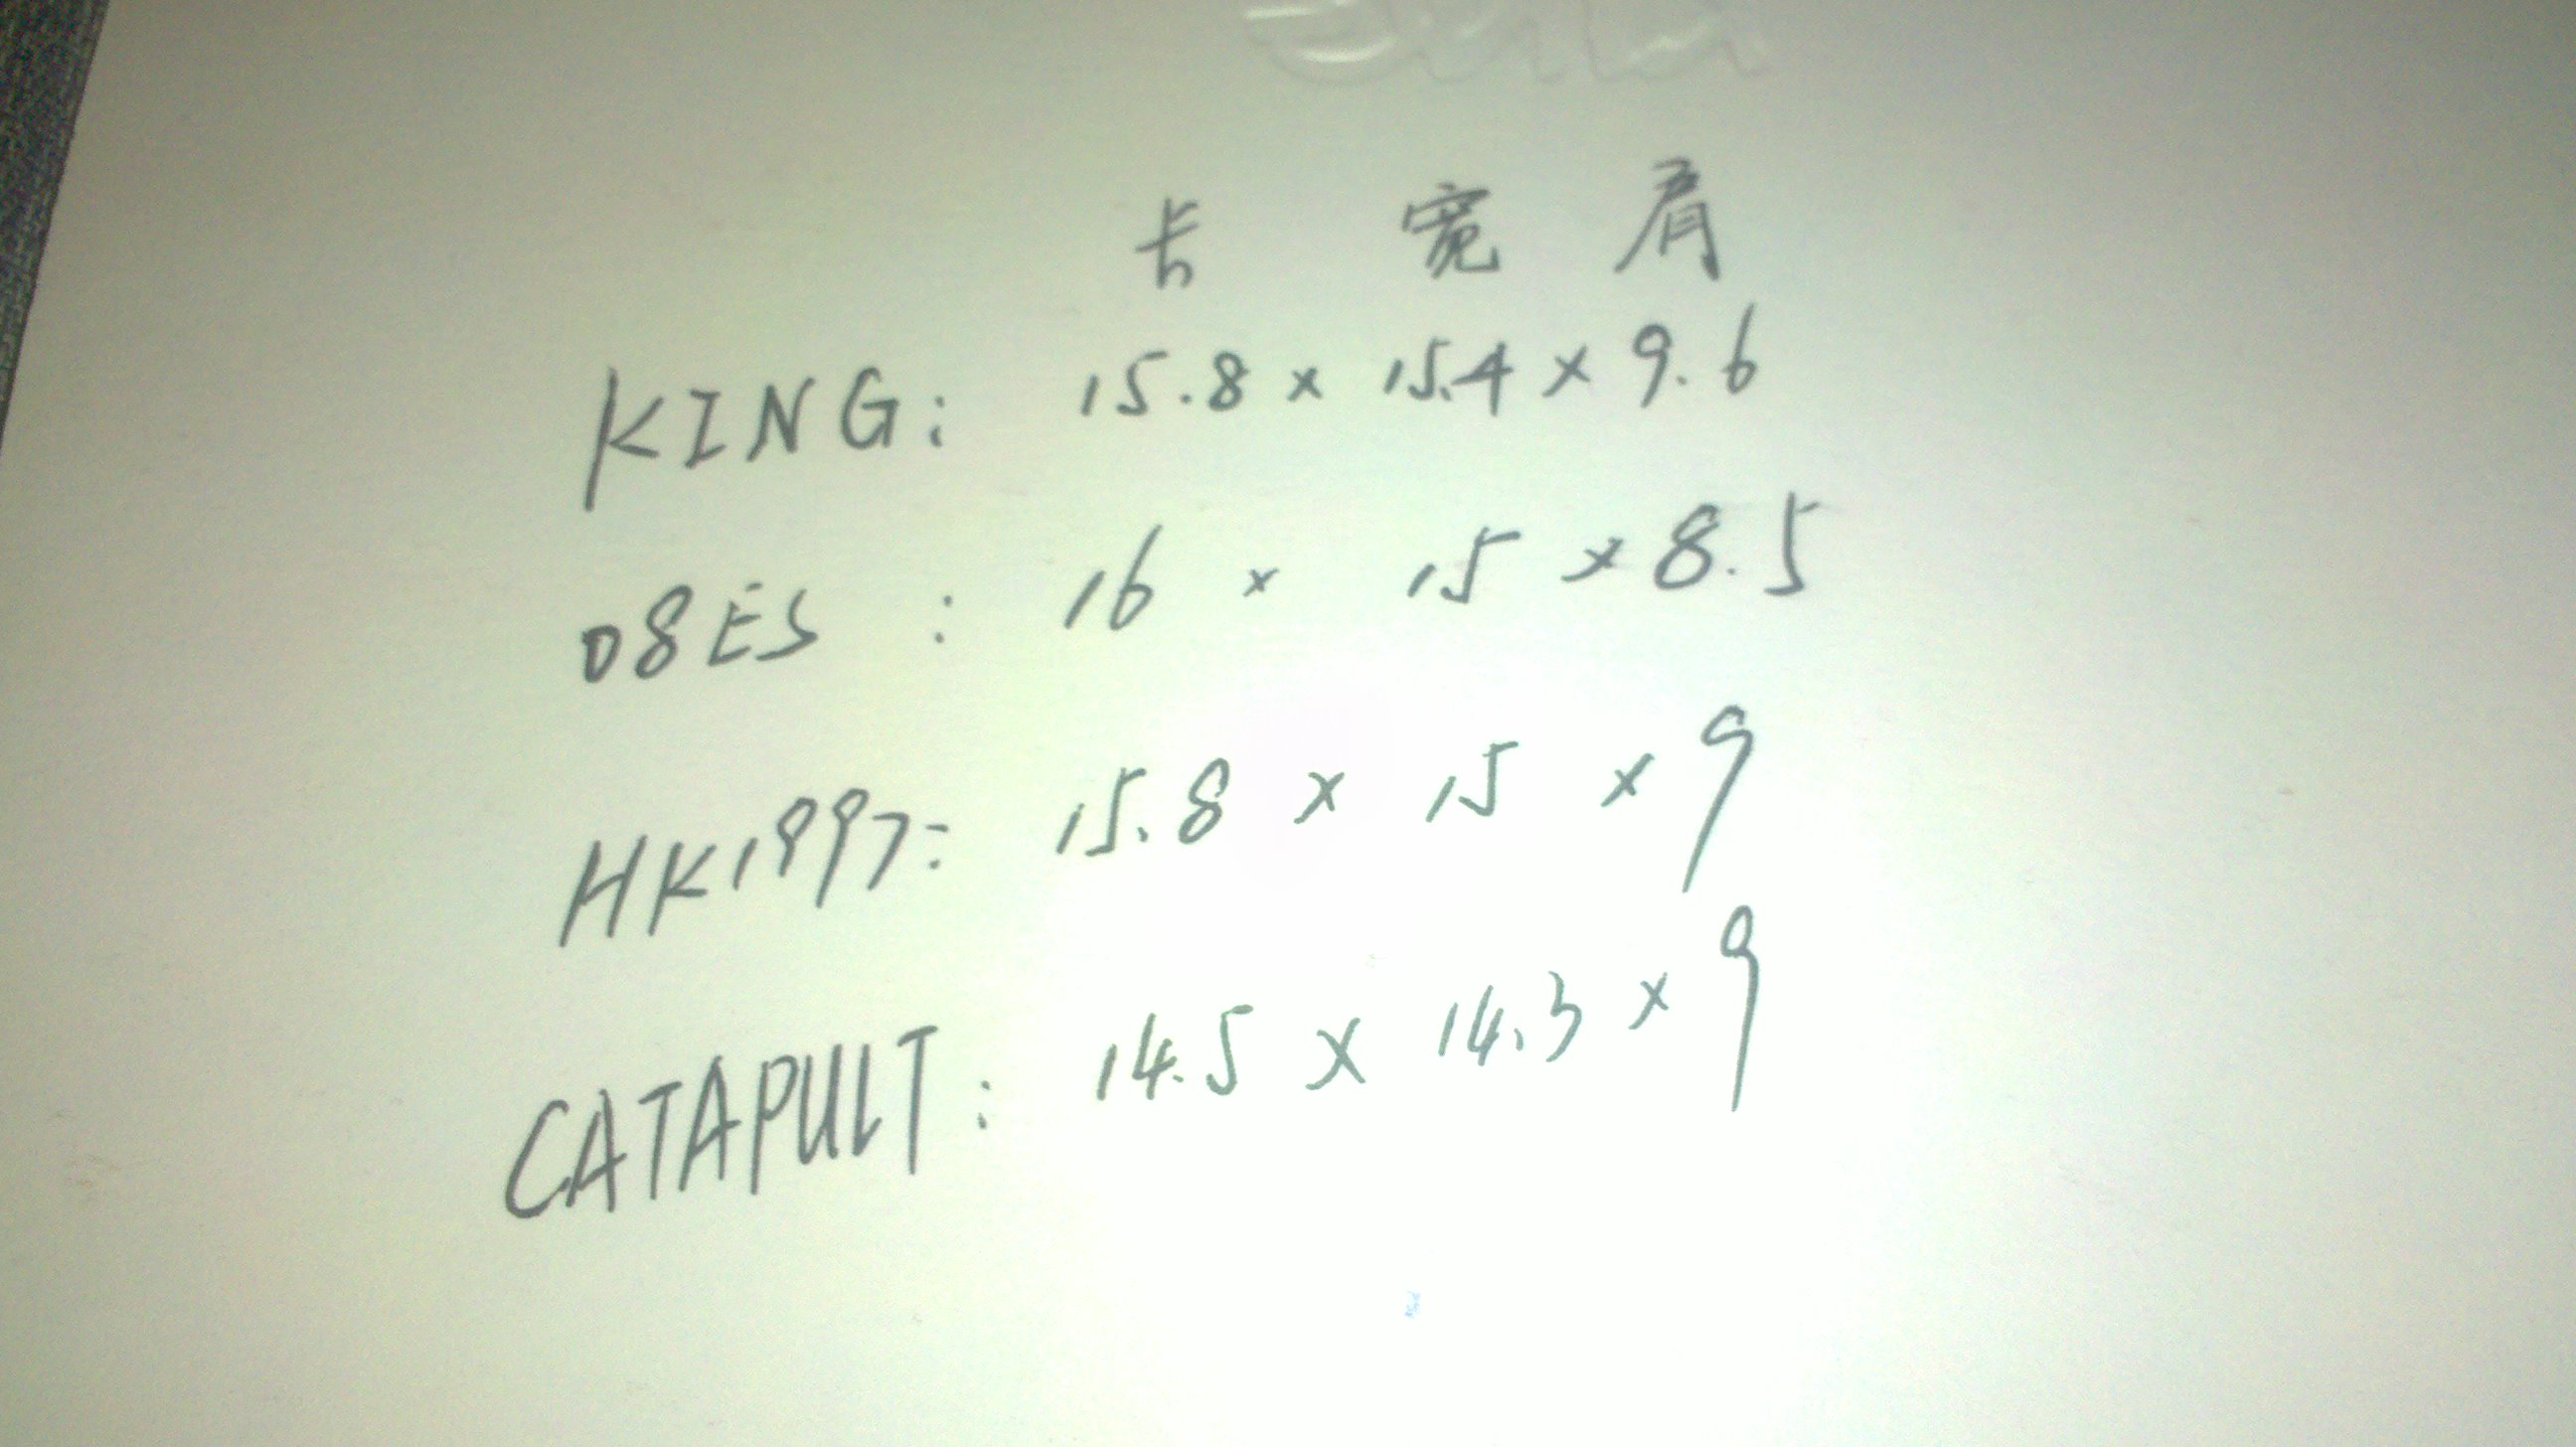 长 宽 肩
KING: 15.8 × 15.4 × 9.6
08ES : 16 × 15 × 8.5
HK1997: 15.8 × 15 × 9
CATAPULT: 14.5 × 14.3 × 9